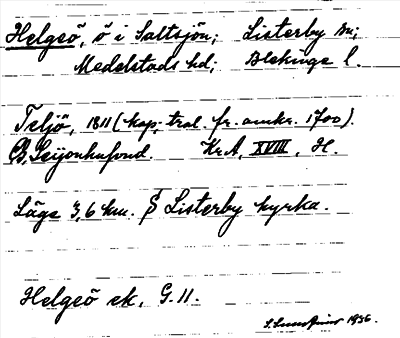 Helgeö, ö i Saltsjön; Listerby sn;
Medelstads hd; Blekinge l.
Teljö, 1811 (kop; tral. fr. omkr. 1700).
KrA, XVIII, H.
Läge 3,6 km. S Listerby kyrka.
Helgeö ek. G. 11.
1936.